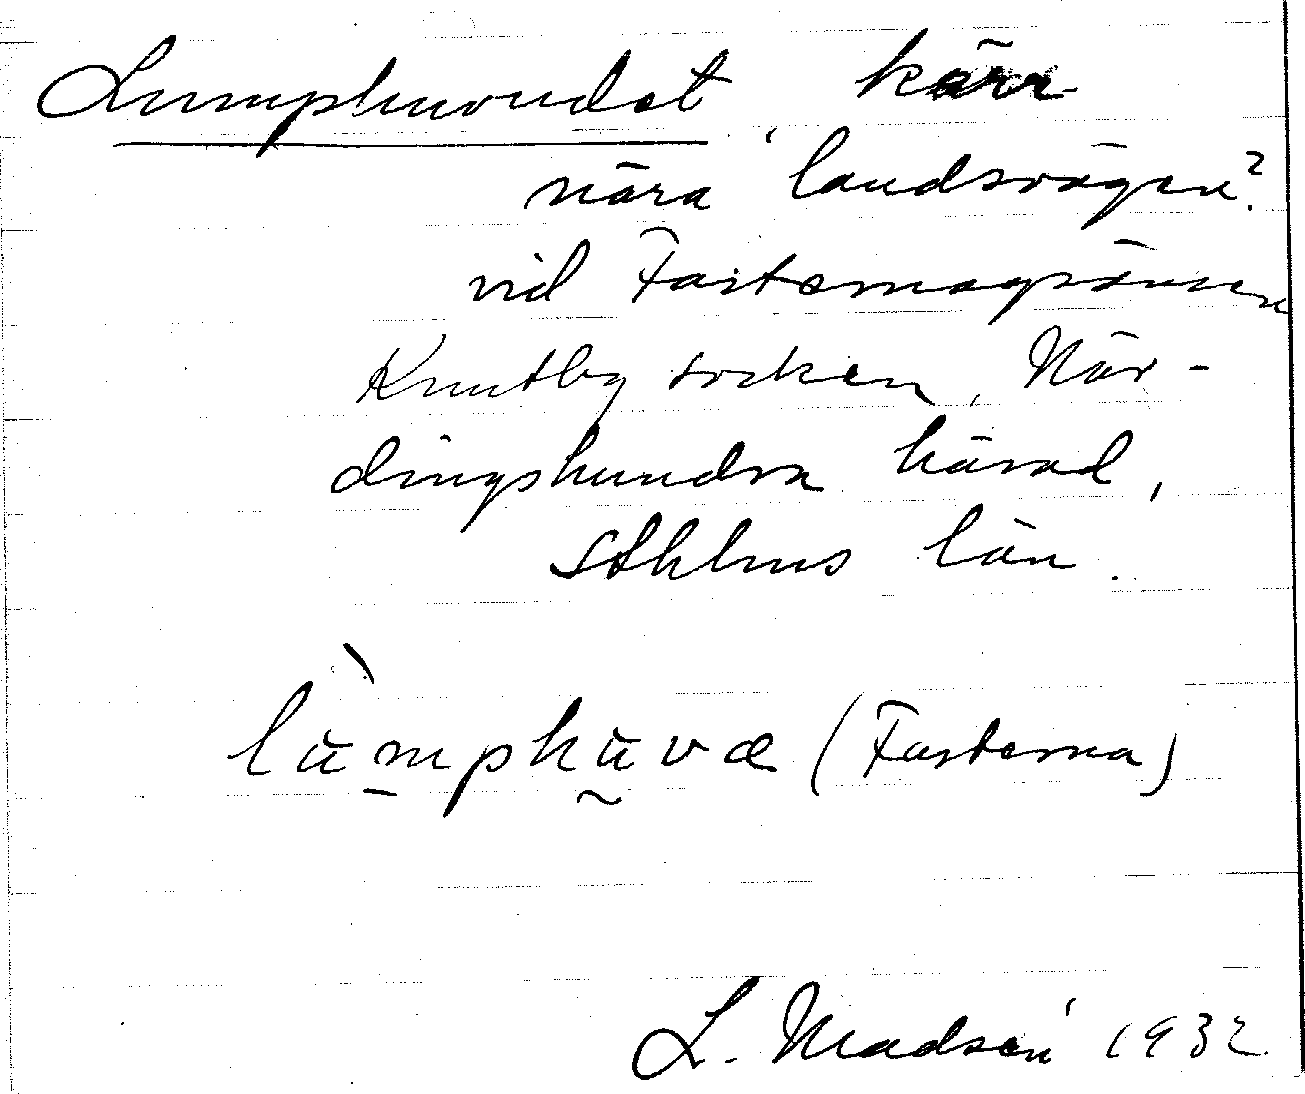 Lumphuvudet kärr
nära landsvägen?
vid Fasternagränsen
Knutby socken, När-
dingshundra härad,
Sthlms län.
lùmphuvæ (Fasterna)
L. Madsén 1932